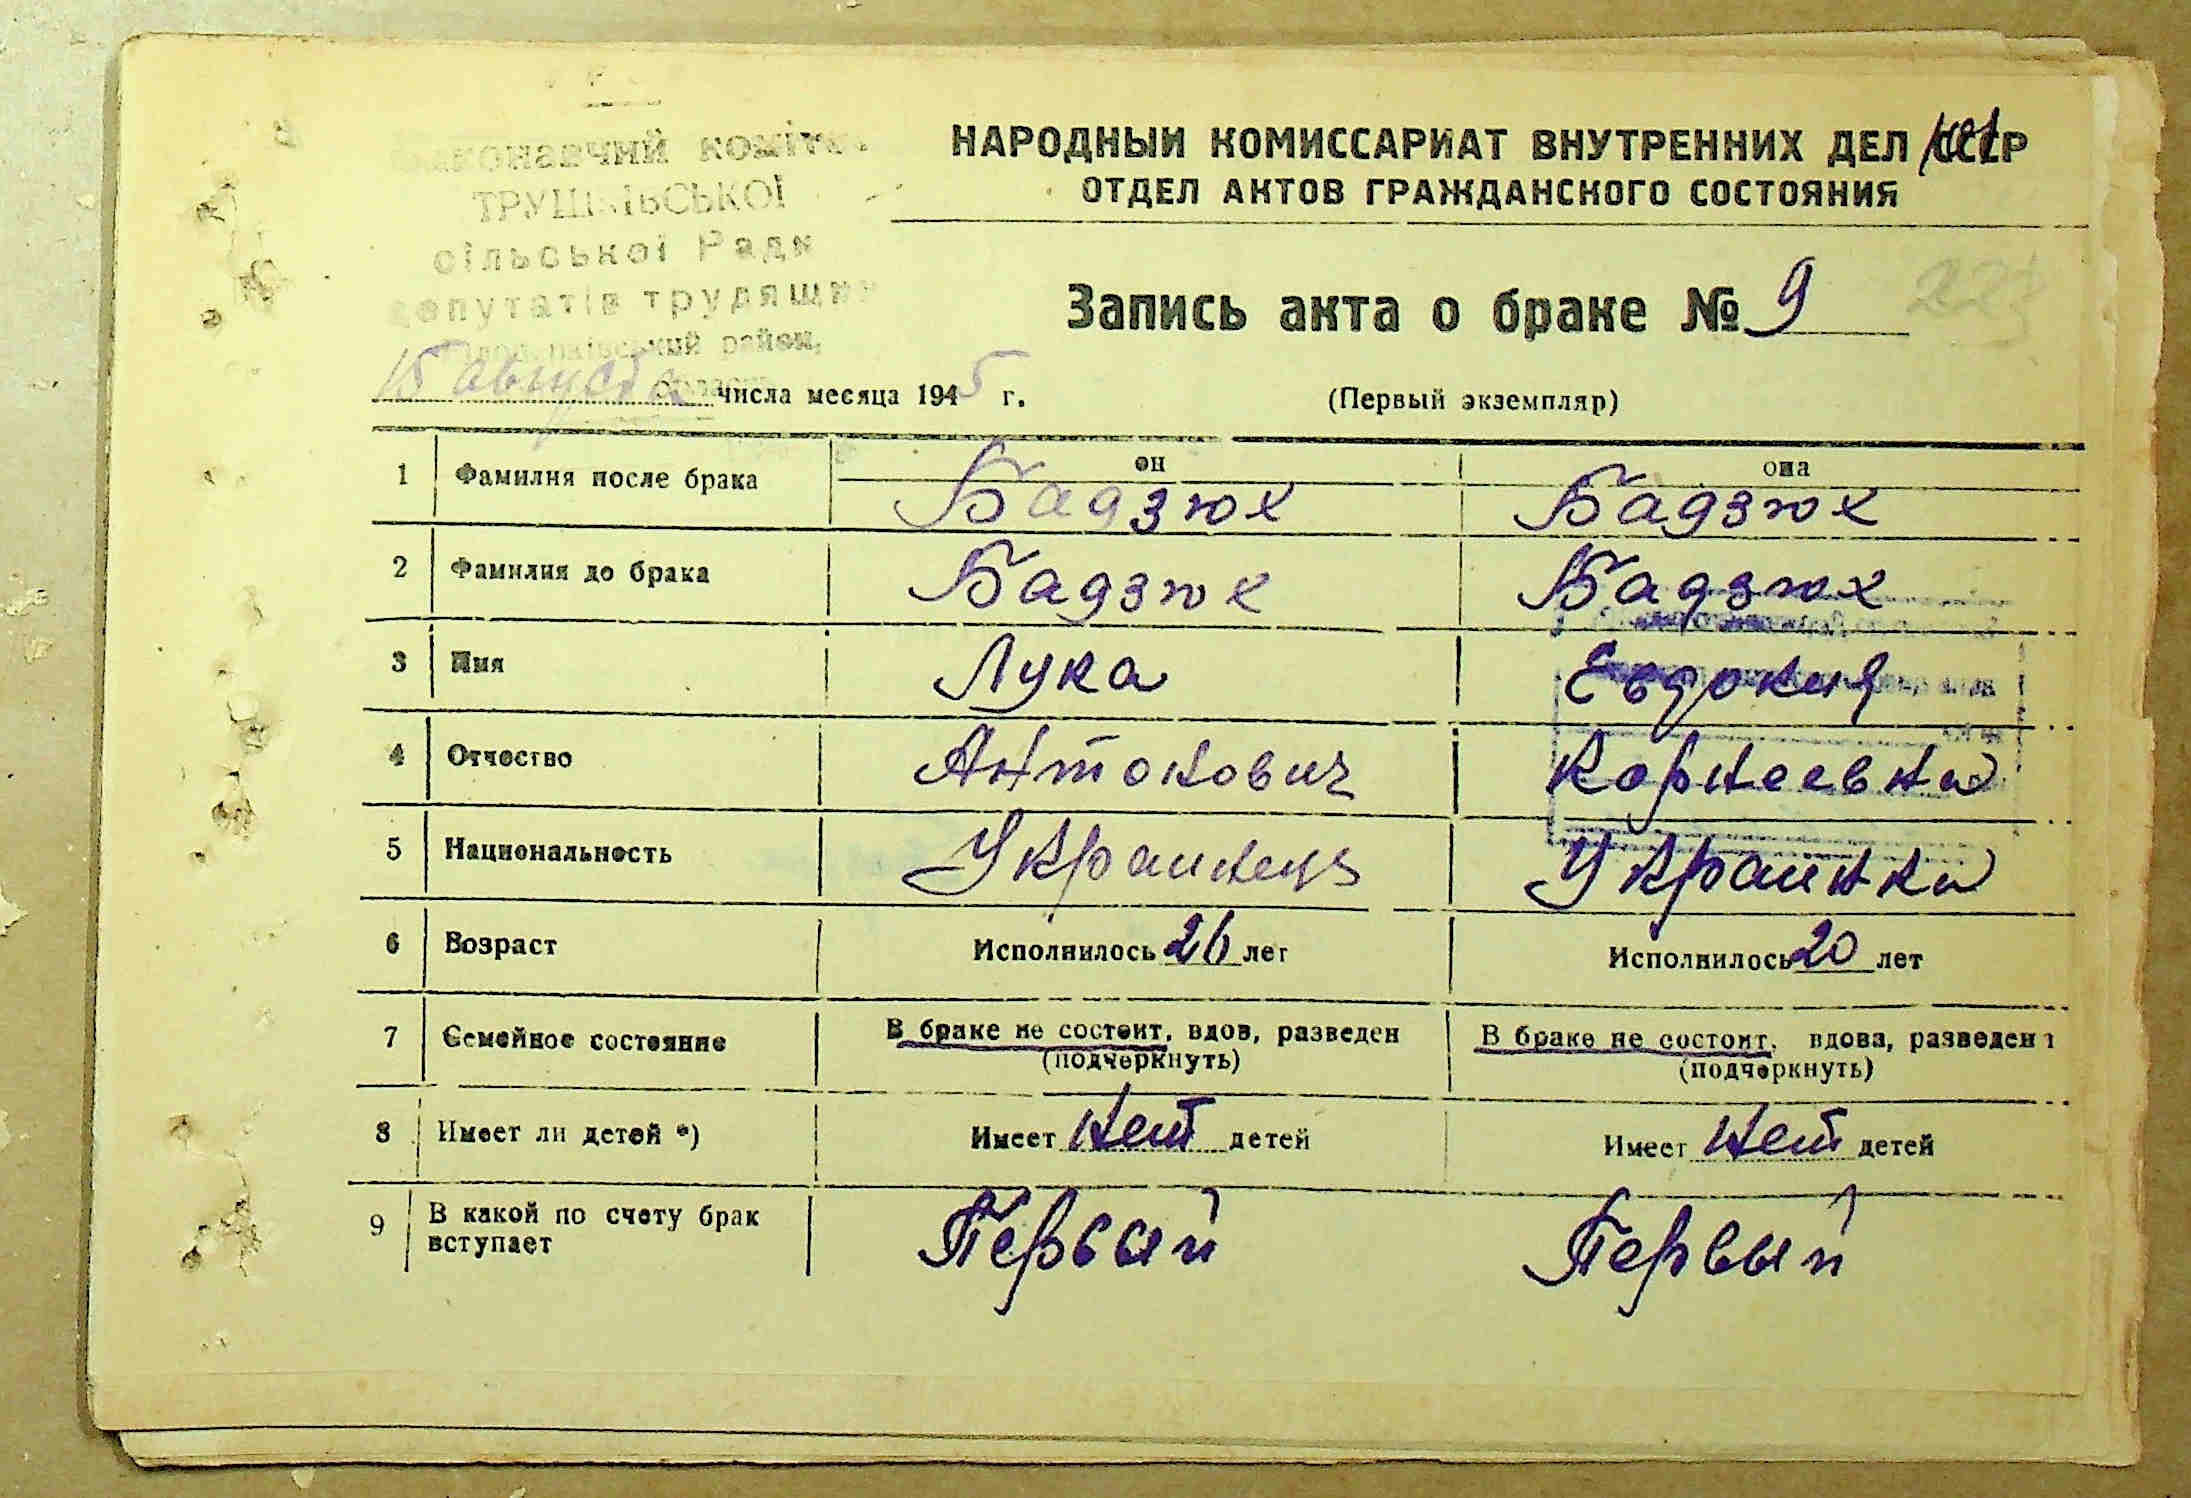 Виконавчий комітет
ТРУШКІВСЬКОЇ
сільської Ради
депутатів трудящих
район,
НАРОДНЫЙ КОМИССАРИАТ ВНУТРЕННИХ ДЕЛ
ОТДЕЛ АКТОВ ГРАЖДАНСКОГО СОСТОЯНИЯ
Запись акта о браке № 9
15 августа числа месяца 1945 г.
(Первый экземпляр)
он
она
1 Фамилия после брака Бадзюх Бадзюх
2 Фамилия до брака Бадзюх Бадзюх
3 Имя Лука Евдокия
4 Отчество Антонович Корнеевна
5 Национальность Украинец Украинка
6 Возраст Исполнилось 26 лет Исполнилось 20 лет
7 Семейное состояние В браке не состоит, вдов, разведен В браке не состоит, вдова, разведена
(подчеркнуть) (подчеркнуть)
8 Имеет ли детей *) Имеет нет детей Имеет нет детей
9 В какой по счету брак
вступает Первый Первый